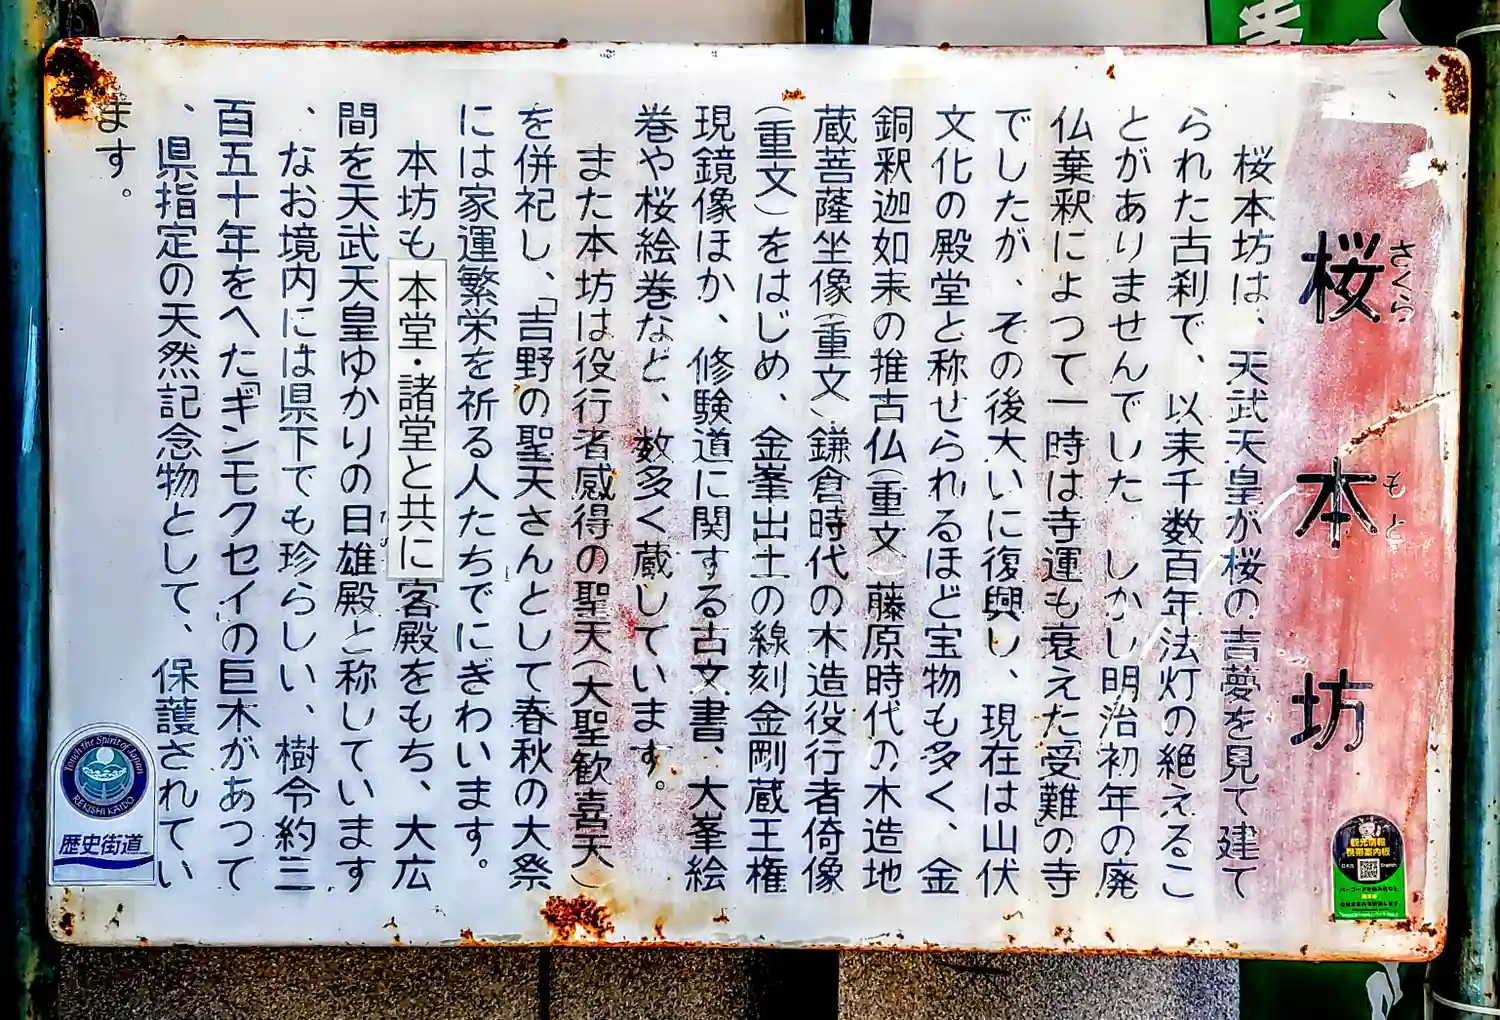 桜本坊
さくら
もと
桜本坊は、天武天皇が桜の吉夢を見て建て
られた古刹で、以来千数百年法灯の絶えるこ
とがありませんでした。しかし明治初年の廃
仏棄釈によって一時は寺運も衰えた「受難」の寺
でしたが、その後大いに復興し、現在は山伏
文化の殿堂と称せられるほど宝物も多く、金
銅釈迦如来の推古仏(重文)藤原時代の木造地
蔵菩薩坐像(重文)鎌倉時代の木造役行者倚像
(重文)をはじめ、金峯出土の線刻金剛蔵王権
現鏡像ほか、修験道に関する古文書、大峯絵
巻や桜絵巻など、数多く蔵しています。
また本坊は役行者感得の聖天(大聖歓喜天)
を併祀し、「吉野の聖天さんとして春秋の大祭
には家運繁栄を祈る人たちでにぎわいます。
本坊も本堂・諸堂と共に客殿をもち、大広
間を天武天皇ゆかりの日雄殿と称しています
、なお境内には県下でも珍らしい、樹令約三
百五十年をへた「ギンモクセイ」の巨木があって
、県指定の天然記念物として、保護されてい
ます。
Touch the Spirit of Japan
REKISHI KAIDO
歴史街道
観光情報
携帯案内板
日本語
English